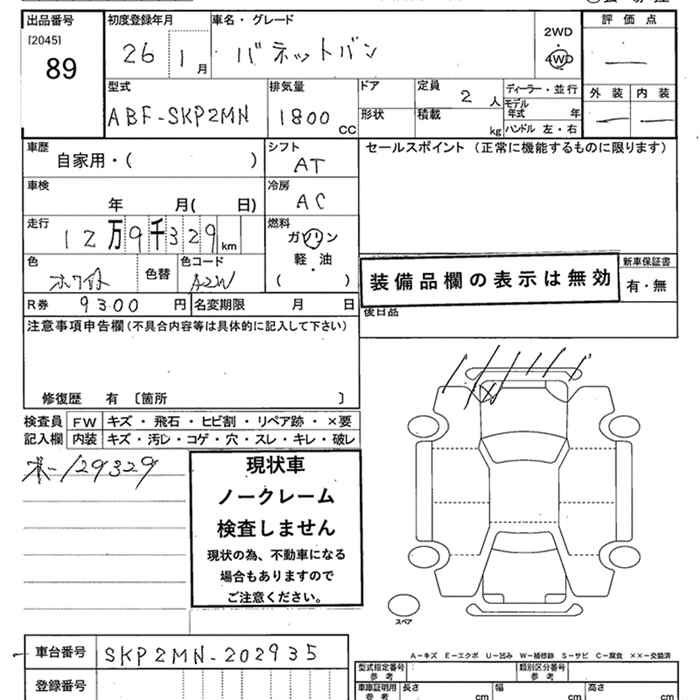 出品番号 初度登録年月 車名・グレード 評価点
[2045]
89 26 1月 バネットバン 2WD 4WD —
型式 排気量 ドア 定員 2人 ディーラー・並行 外装 内装
ABF-SKP2MN 1800cc 形状 積載 kg モデル年式 年 — —
ハンドル 左・右
車歴 自家用・( ) シフト AT セールスポイント (正常に機能するものに限ります)
車検 年 月( 日) 冷房 AC
走行 12万9千329km 燃料 ガソリン
軽・油
( )
色 ホワイト 色替 色コード A2W 装備品欄の表示は無効 新車保証書
有・無
R券 9300円 名変期限 月 日 後日品
注意事項申告欄(不具合内容等は具体的に記入して下さい)
修復歴 有 〔箇所 〕
検査員 FW キズ・飛石・ヒビ割・リペア跡・×要
記入欄 内装 キズ・汚レ・コゲ・穴・スレ・キレ・破レ
129329
現状車
ノークレーム
検査しません
現状の為、不動車になる
場合もありますので
ご注意ください。
スペア
車台番号 SKP2MN-202935
登録番号
A-キズ E-エクボ U-凹み W-補修跡 S-サビ C-腐食 ××-交換済
型式指定番号 参考 類別区分番号 参考
車庫証明用 参考 長さ cm 幅 cm 高さ cm